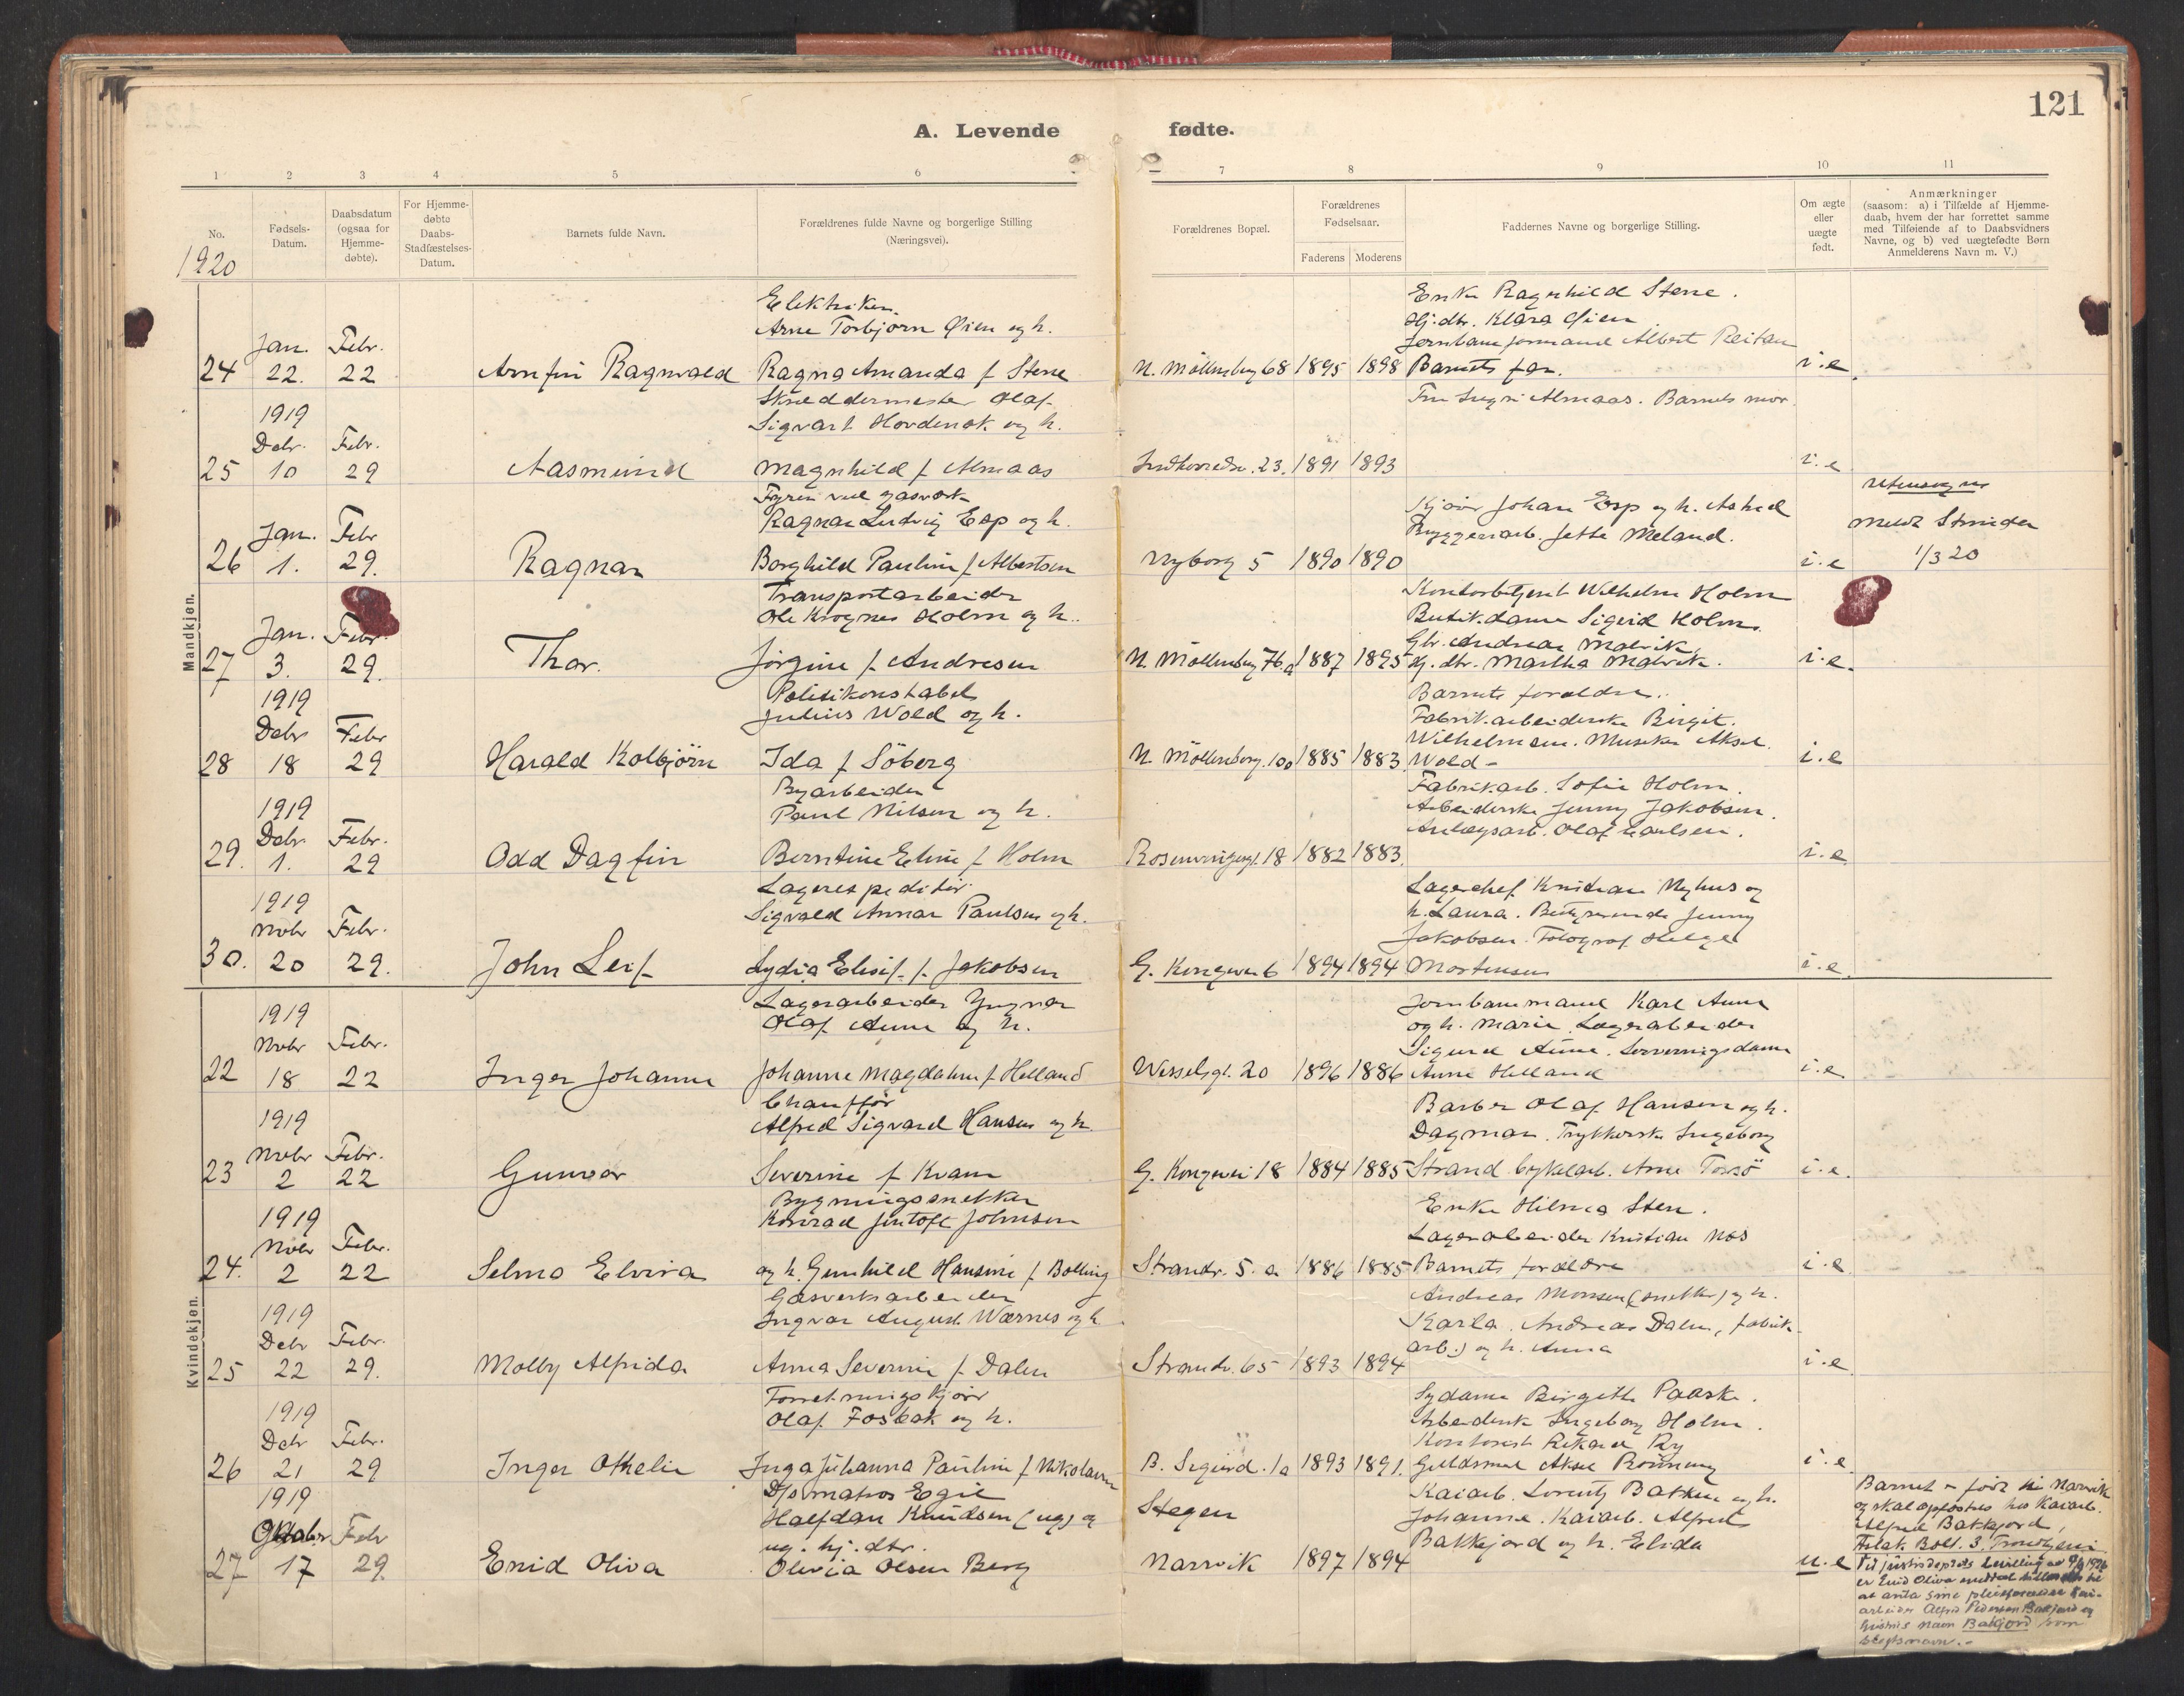 121
A. Levende fødte.
1 2 3 4 5 6 7 8 9 10 11
No.
Fødsels-
Datum.
Daabsdatum
(ogsaa for
Hjemme-
døbte).
For Hjemme-
døbte
Daabs-
Stadfæstelses-
Datum.
Barnets fulde Navn.
Forældrenes fulde Navne og borgerlige Stilling
(Næringsvei).
Forældrenes Bopæl.
Forældrenes
Fødselsaar.
Faderens Moderens
Faddernes Navne og borgerlige Stilling.
Om ægte
eller
uægte
født.
Anmærkninger
(saasom: a) i Tilfælde af Hjemme-
daab, hvem der har forrettet samme
med Tilføiende af to Daabsvidners
Navne, og b) ved uægtefødte Børn
Anmelderens Navn m. V.)
1920
Mandkjøn.
Elektriker
Arne Torbjørn Øien og h.
Enke Ragnhild Stene.
Hj.dtr. Klara Øien
Jernbaneformand Albert Reitan
Jan. Febr.
24 22. 22 Arnfin Ragnvald Ragna Amanda f Stene N. Möllenberg 68 1895 1898 Barnets far. i.e.
Skreddermester Olaf
Sigvart Hovdenak og h.
Almaas. Barnets mor.
1919
Debr. Febr.
25 10 29 Aasmund Magnhild f Almaas 23. 1891 1893 i.e
Fyrbø ved gasverk
Ragnar Ludvig Esp og h.
Kjører Johan Esp og h. Astrid
Bryggeriarb. Jette Meland.
utensogns
meldt Strinden
1/3 20
Jan. Febr
26 1. 29. Ragnar Borghild Pauline f Albertsen Nyborg 5 1890 1890 i.e
Transportarbeider
Ole Krognes Holm og h.
Kontorbetjent Wilhelm Holm
Butikdame Sigrid Holm.
Gbr. Andreas Malvik,
Jan. Febr.
27 3. 29. Thor. Jørgine f Andresen N. Möllenberg 76a 1887 1895 Hj.dtr. Martha Malvik. i.e.
Politikonstabel
Julius Wold og h.
Barnets forældre.
Fabrikarbeiderske Birgit
Wilhelmsen. Musiker Aksel
1919
Debr Febr
28 18 29 Harald Kolbjörn Ida f Söberg N. Möllenberg. 100 1885 1883 Wold - i.e
Byarbeider
Paul Nilsen og h.
Fabrikarb. Sofie Holm.
Arbeiderske Jenny Jakobsen.
Anlægsarb. Olaf Carlsen.
1919
Debr. Febr.
29. 1. 29 Odd Dagfin Berntine Eline f Holm 18 1882 1883. i.e
Lagerexpeditør
Sigvald Annar Paulsen og h.
Lagerchef Kristian Nyhus og
h. Laura. Bestyrerinde Jenny
Jakobsen. Fotograf Helge
1919
Nobr Febr.
30. 20 29. John Leif Lydia Elisif f. Jakobsen G. Kongevei 6 1894 1894 Mortensen i.e.
Kvindekjøn.
Lagerarbeider Yngvar
Olaf Aune og h.
Jernbanemand Karl Aune
og h. Marie. Lagerarbeider
Sigurd Aune. Serveringsdame
1919
Nobr Febr.
22 18 22 Inger Johanne Johanne Magdalene f Helland Wesselsgt. 20 1896 1886 Anne Helland i.e.
Chauffør
Alfred Sigvard Hansen og h.
Barber Olaf Hansen og h.
Dagmar. Trykkerske Ingeborg
1919
Nobr Febr.
23 2 22 Gunvor Severine f Kvam G. Kongevei 18 1884 1885 Strand. Cykelarb. Arne Torsö i.e.
Bygningssnekker
Konrad Jentoft Johnsen
Enke Hilma Sten.
Lagerarbeider Kristian Mos
1919
Nobr Febr.
24. 2 22 Selma Elvira og h. Gunhild Hansine f Bolling Strandv. 5. a 1886 1885 Barnets forældre i.e
Gasverksarbeider
Ingvar August Wærnes og h
Andreas Monsen (snekker) og h.
Karla. Andreas Dalen, (fabrik-
arb.) og h. Anna
1919
Debr Febr.
25 22 29. Molly Alfrida Anna Severine f. Dalen Strandv. 65 1893 1894 i.e
Forretningskjører
Olaf Fosbak og h.
Sydame Birgitte Paaske.
Arbeiderske Ingeborg Holm.
Kontorist Rikard Ry
1919
Debr Febr.
26 21 29 Inger Othelie Inga Johanna Pauline f Nikolaisen B. Sigurd. 1a 1893 1891. Guldsmed Aksel Rönning i.e
D/s matros Egil
Halfdan Knudsen (ug) og
ug. hj.dtr.
Stegen
Kaiarb. Lorentz Bakken og h.
Johanne. Kaiarb. Alfred
Bakkejord og h. Elida
1919
Oktobr Febr
27 17 29. Enid Oliva Olivia Olsen Berg Narvik 1897 1894 u.e
Barnet er født i Narvik
og skal opfostres hos Kaiarb.
Alfred Bakkejord,
Aslak Bolt. 3. Trondhjem
Til justisdeptets bevilling av 9/6 1926
er Enid Oliva meddelt tilladelse til
at anta sine pleieforældre kai-
arbeider Alfred Pedersen Bakjord og
hustrus navn Bakjord som
slegtsnavn.-